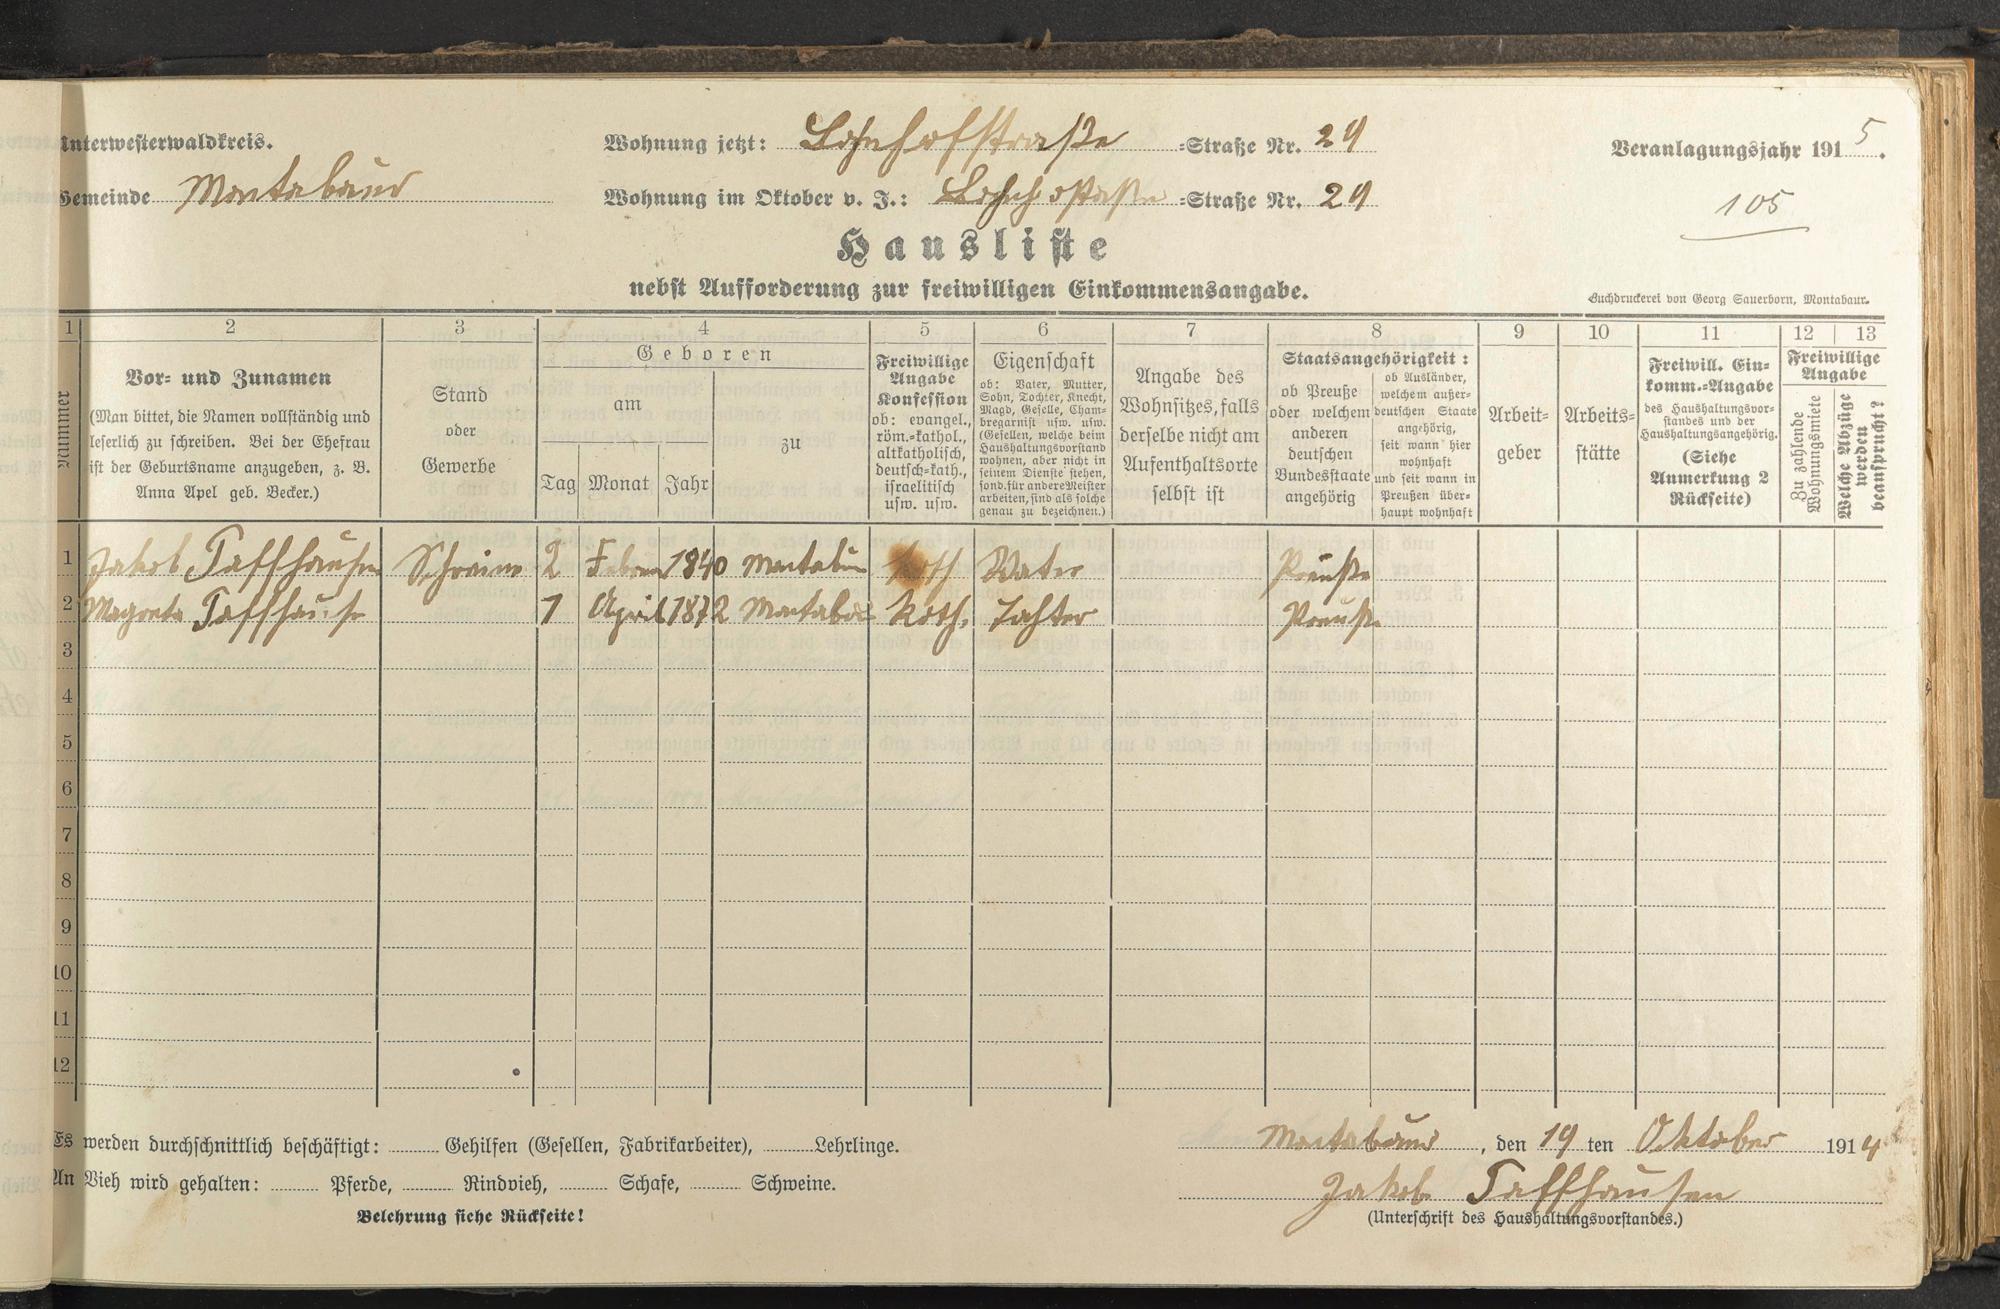 Unterwesterwaldkreis.
Gemeinde Montabaur
Wohnung jetzt: Bahnhofstraße =Straße Nr. 29
Wohnung im Oktober v. J.: =Straße Nr. 29
Veranlagungsjahr 1915.
105
Hausliste
nebst Aufforderung zur freiwilligen Einkommensangabe.
Buchdruckerei von Georg Sauerborn, Montabaur.
1 2 3 4 5 6 7 8 9 10 11 12 13
Nummer
Vor- und Zunamen
(Man bittet, die Namen vollständig und
leserlich zu schreiben. Bei der Ehefrau
ist der Geburtsname anzugeben, z. B.
Anna Apel geb. Becker.)
Stand
oder
Gewerbe
Geboren
am
Tag Monat Jahr
zu
Freiwillige
Angabe
Konfession
ob: evangel.,
röm.-kathol.,
altkatholisch,
deutsch-kath.,
israelitisch
usw. usw.
Eigenschaft
ob: Vater, Mutter,
Sohn, Tochter, Knecht,
Magd, Geselle, Cham-
bregarnist usw. usw.
(Gesellen, welche beim
Haushaltungsvorstand
wohnen, aber nicht in
seinem Dienste stehen,
sond. für andere Meister
arbeiten, sind als solche
genau zu bezeichnen.)
Angabe des
Wohnsitzes, falls
derselbe nicht am
Aufenthaltsorte
selbst ist
Staatsangehörigkeit:
ob Preuße
oder welchem
anderen
deutschen
Bundesstaate
angehörig
ob Ausländer,
welchem außer-
deutschen Staate
angehörig,
seit wann hier
wohnhaft
und seit wann in
Preußen über-
haupt wohnhaft
Arbeit-
geber
Arbeits-
stätte
Freiwill. Ein-
komm.-Angabe
des Haushaltungsvor-
standes und der
Haushaltungsangehörig.
(Siehe
Anmerkung 2
Rückseite)
Freiwillige
Angabe
Zu zahlende
Wohnungsmiete
Welche Abzüge
werden
beansprucht?
1 Jakob Saffhausen Schreiner 2 Februar 1840 Montabaur Kath Vater Preuße
2 Magreta Saffhausen 1 April 1872 Montabaur Kath. Tochter Preuße
3
4
5
6
7
8
9
10
11
12
Es werden durchschnittlich beschäftigt: Gehilfen (Gesellen, Fabrikarbeiter), Lehrlinge.
An Vieh wird gehalten: Pferde, Rindvieh, Schafe, Schweine.
Belehrung siehe Rückseite!
Montabaur, den 19 ten Oktober 1914
Jakob Saffhausen
(Unterschrift des Haushaltungsvorstandes.)